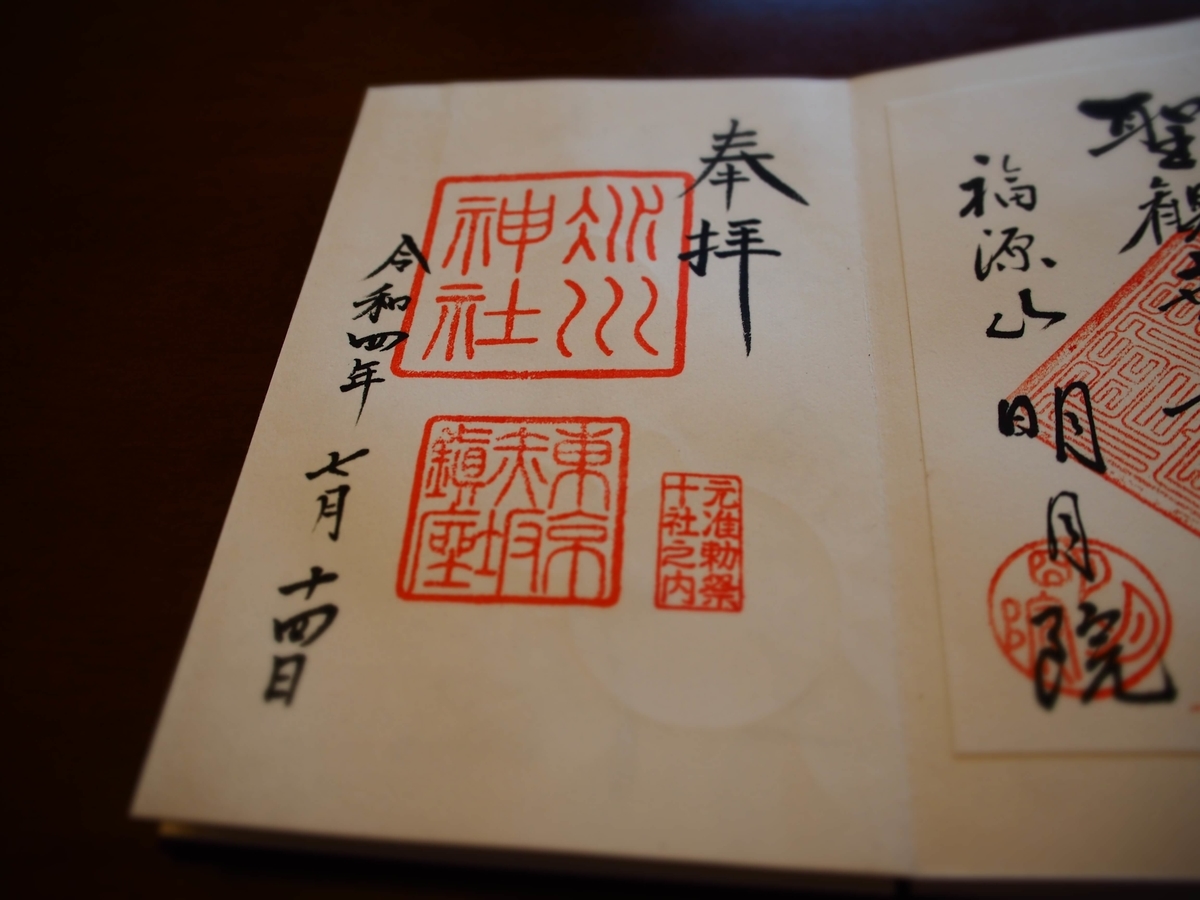 聖観
福源山
明月院
奉拝
氷川
神社
東京
赤坂
鎭座
元准勅祭
十社之内
令和四年 七月 十四日